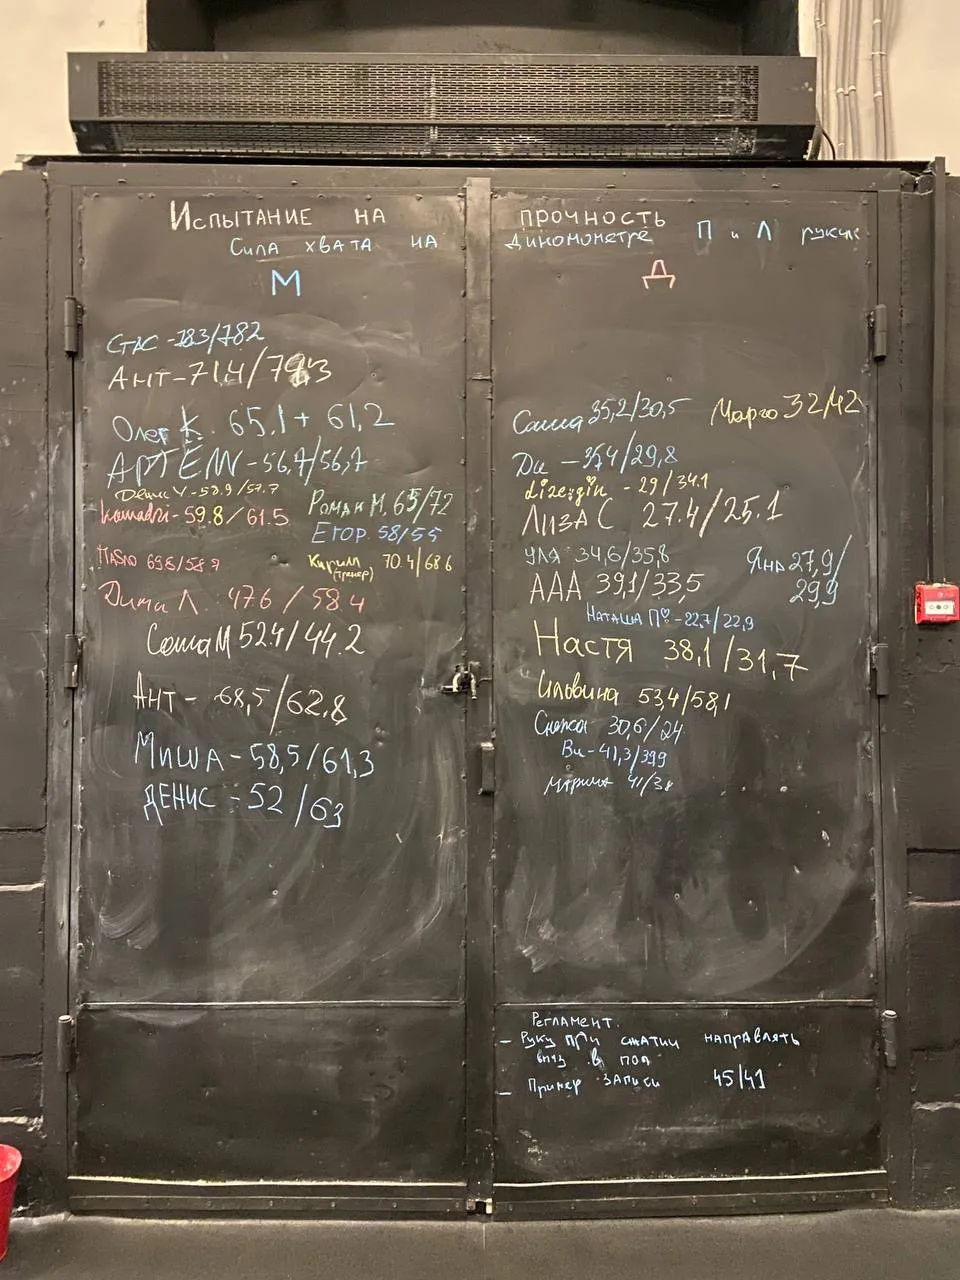 Испытание на прочность
Сила хвата на диномометре П и Л рукие
М
Стас - 183/782
Ант - 71,4/79,3
Олег К. 65.1 + 61,2
Артём - 56,7/56,7
Денис Ч - 53.9/57.7
Роман М. 65/72
- 59.8/61.5
Егор. 58/55
Маsло 69.8/58.9
Кирилл 70.4/68.6
(тренер)
Дима Л. 47.6/58.4
Саша М 52.4/44.2
Ант - 68,5/62,8
Миша - 58,5/61,3
Денис - 52/63
Д
Саша 35,2/30,5
Марго 32/42
Ди - 37,4/29,8
dizergin - 29/34.1
Лиза С 27.4/25.1
Уля 34,6/35,8
Яна 27,9/
29,9
ААА 39,1/33,5
Наташа П♡ - 22,7/22,9
Настя 38,1/31,7
53,4/58,1
30,6/24
Ви - 41,3/39,9
Марина 41/38
Регламент.
- Руку при сжатии направлять
вниз в пол
- Пример записи 45/41